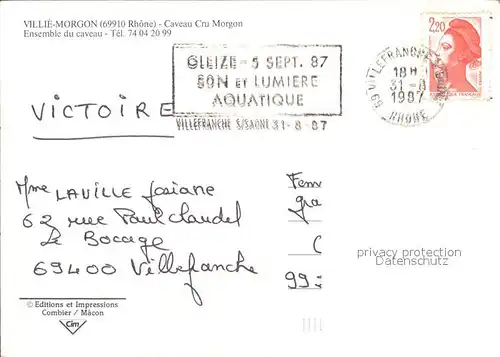 VILLIÉ-MORGON (69910 Rhône) - Caveau Cru Morgon
Ensemble du caveau - Tél. 74 04 20 99
GLEIZE - 5 SEPT. 87
SON ET LUMIERE
AQUATIQUE
VILLEFRANCHE S/SAONE 31-8-87
69 VILLEFRANCHE
18 H
31-8
1987
RHONE
2,20
VICTOIRE
Mme LAVILLE Josiane
62 rue Paul Claudel
Le Bocage
69400 Villefranche
Fem
gra
(
99 :
privacy protection
Datenschutz
© Editions et Impressions
Combier / Mâcon
Cim